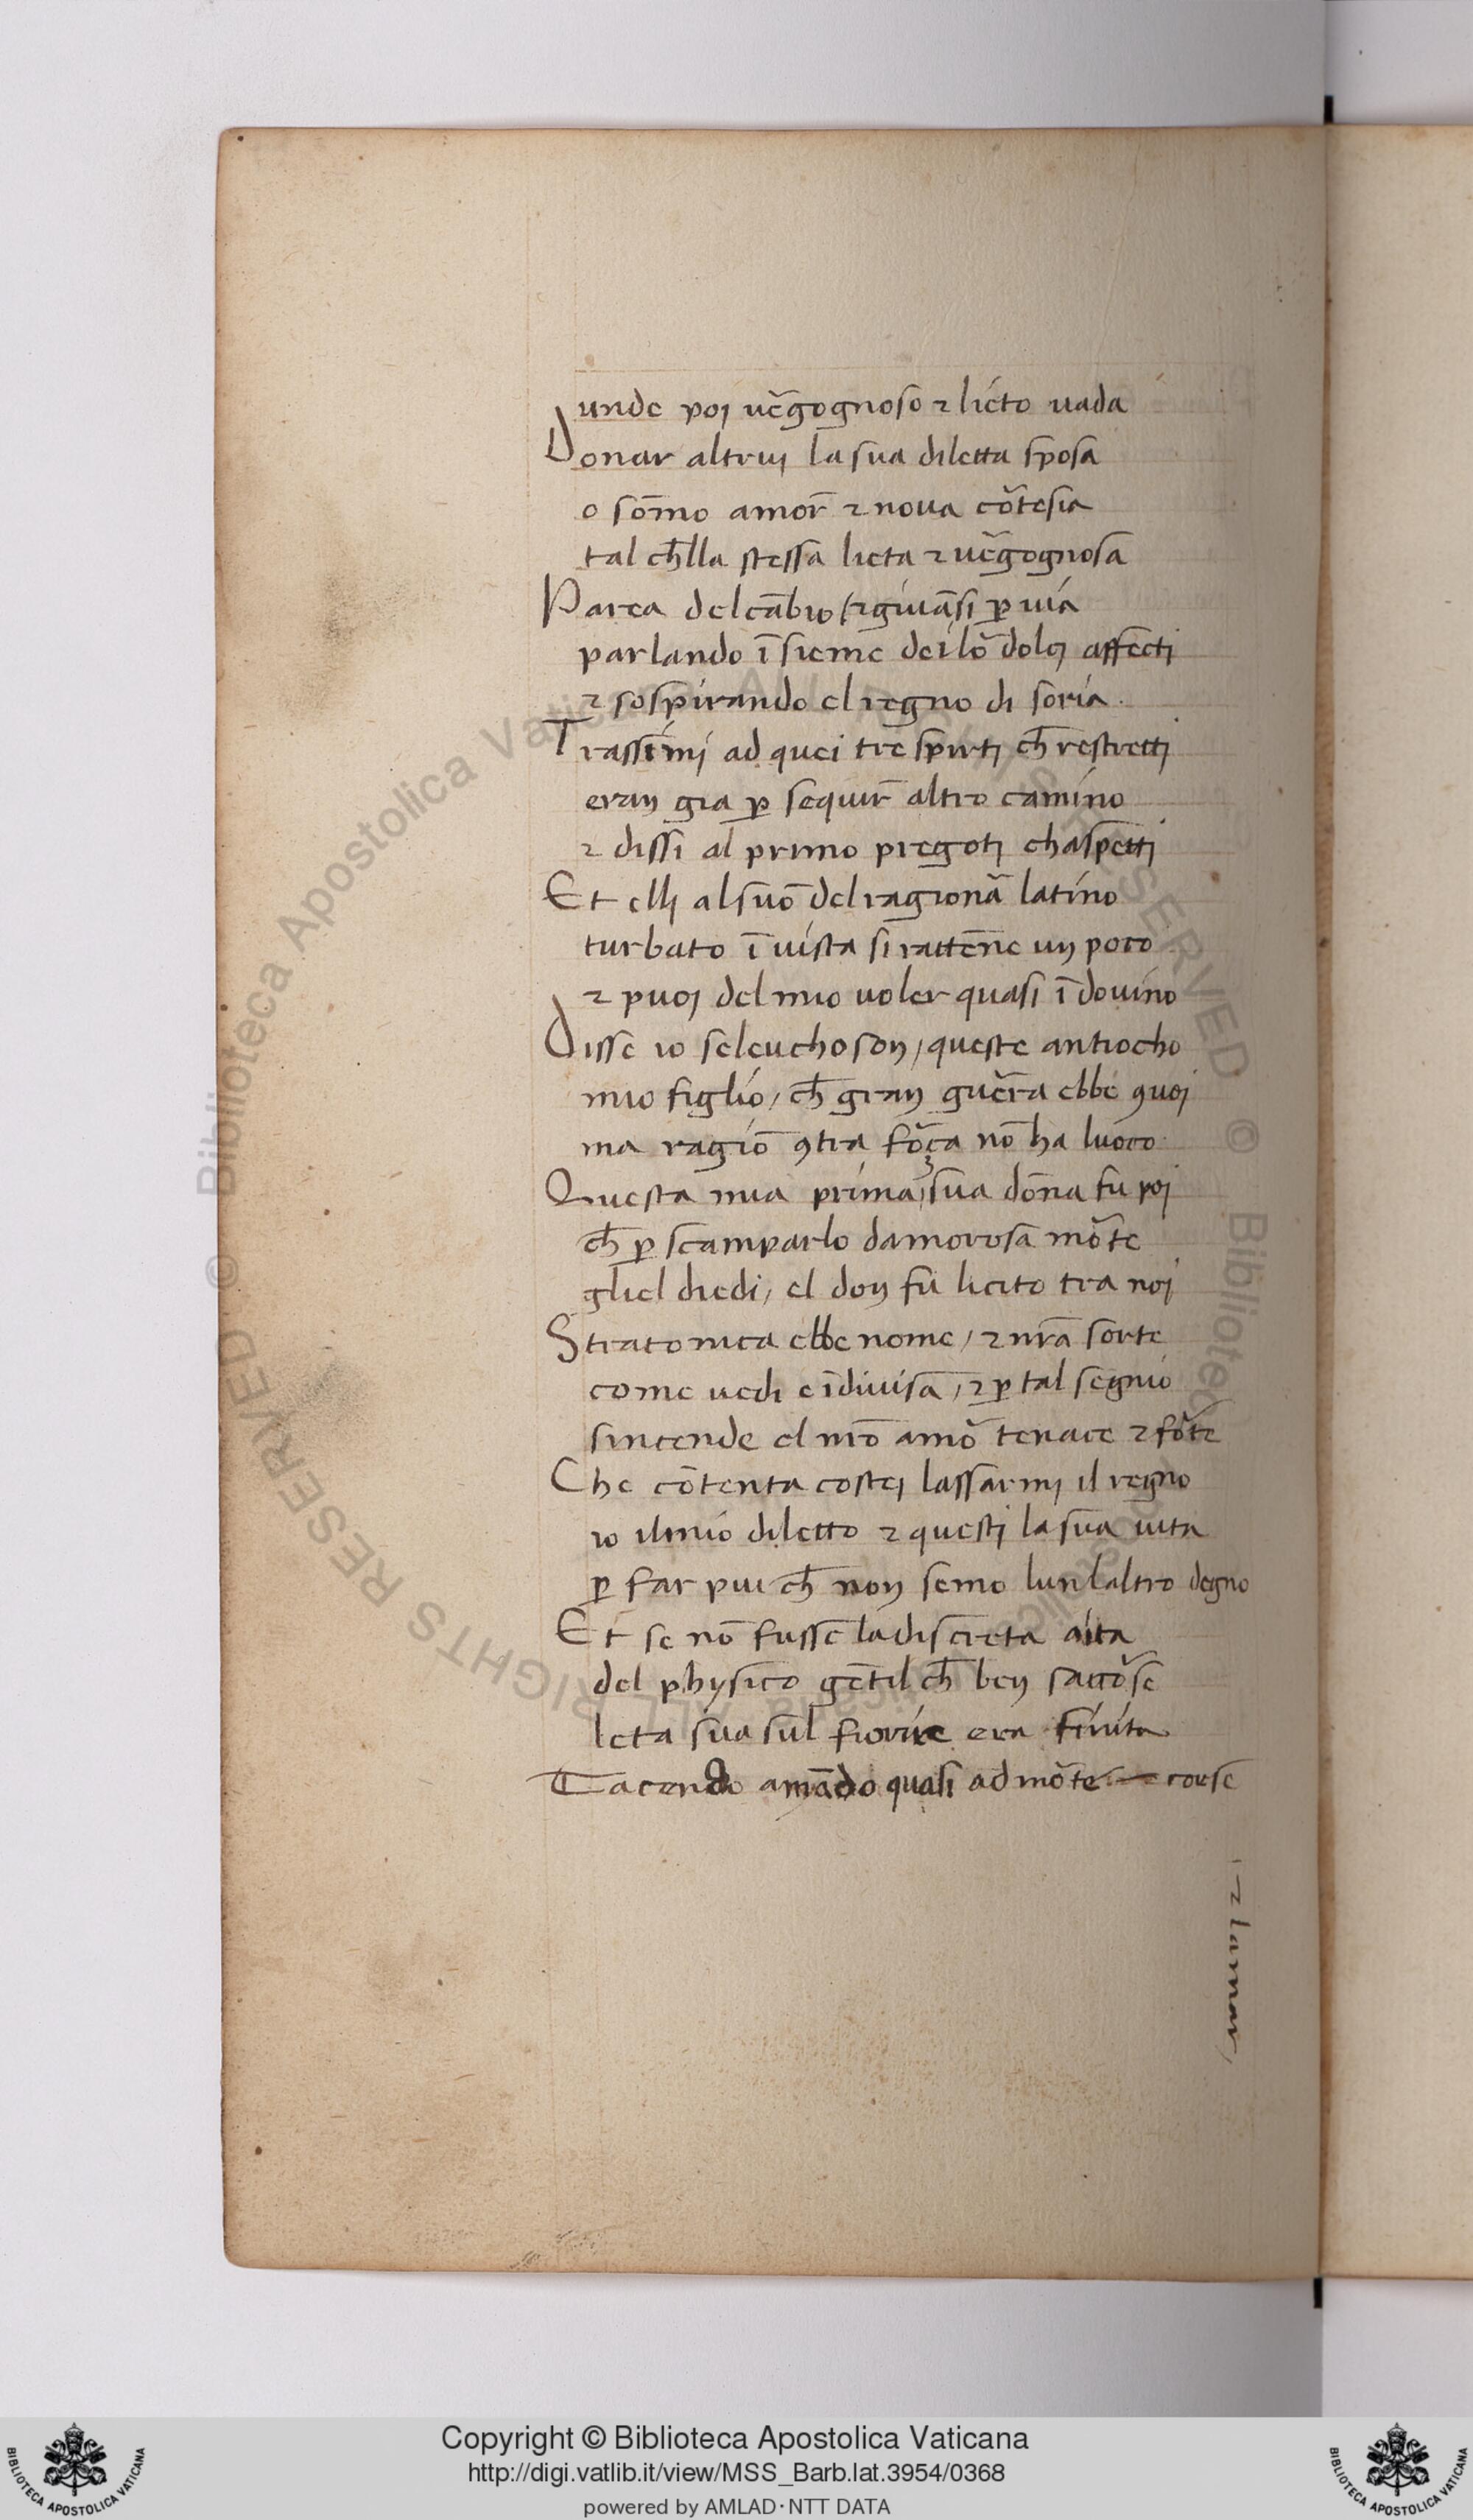 unde poi uẽgognoso ⁊ lieto uada
Donar altruj la sua diletta sposa
o sõmo amor̃ ⁊ noua cõtesia
tal ch̃lla stessa lieta ⁊ uẽgognosa
Parea del cãbio ⁊ giuãsi ꝑ uia
parlando ĩsieme dei lõ dolcj affectj
⁊ sospirando el regno di soria
Trassimj ad quei tre spirtj ch̃ restrettj
eran gia ꝑ sequir̃ altro camino
⁊ dissi al primo pregotj chaspettj
Et ellj al suõ del ragionã latino
turbato ĩ uista si rattẽne un poco
⁊ puoj del mio uoler quasi ĩdouino
Disse io seleucho son / queste antiocho
mio figlio / ch̃ gran guẽra ebbe ꝯuoj
ma ragiõ ꝯtra fõça nõ ha luoco
Questa mia prima / sua dõna fu poj
ch̃ ꝑ scamparlo damorosa mõte
gliel diedi / el don fu licito tra noj
Stratonica ebbe nome / ⁊ nrã sorte
come uedi e ĩdiuisa / ⁊ ꝑ tal segnio
sintende el nrõ amõ tenace ⁊ fõte
Che cõtenta costej lassarmj il regno
io il mio diletto ⁊ questj la sua uita
ꝑ far piu ch̃ non semo lun laltro degno
Et se nõ fusse la discreta aita
del physico gẽtil ch̃ ben saccõse
leta sua sul fiorire era finita
Tacendo amãdo quasi ad mõte corse
⁊ lamar
© Biblioteca Apostolica Vaticana ALL RIGHTS RESERVED
© Biblioteca Apostolica Vaticana ALL RIGHTS RESERVED
Copyright © Biblioteca Apostolica Vaticana
http://digi.vatlib.it/view/MSS_Barb.lat.3954/0368
powered by AMLAD·NTT DATA
BIBLIOTECA APOSTOLICA VATICANA
BIBLIOTECA APOSTOLICA VATICANA